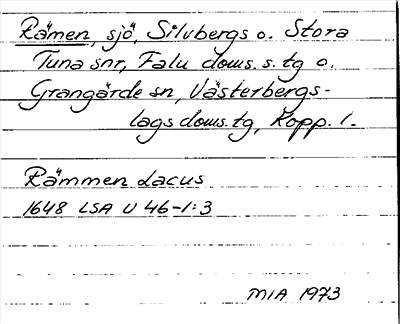 Rämen, sjö, Silvbergs o. Stora
Tuna snr, Falu doms.s.tg o.
Grangärde sn, Västerbergs-
lags doms.tg, Kopp. l.
Rämmen Lacus
1648 LSA U 46-1:3
MIA 1973